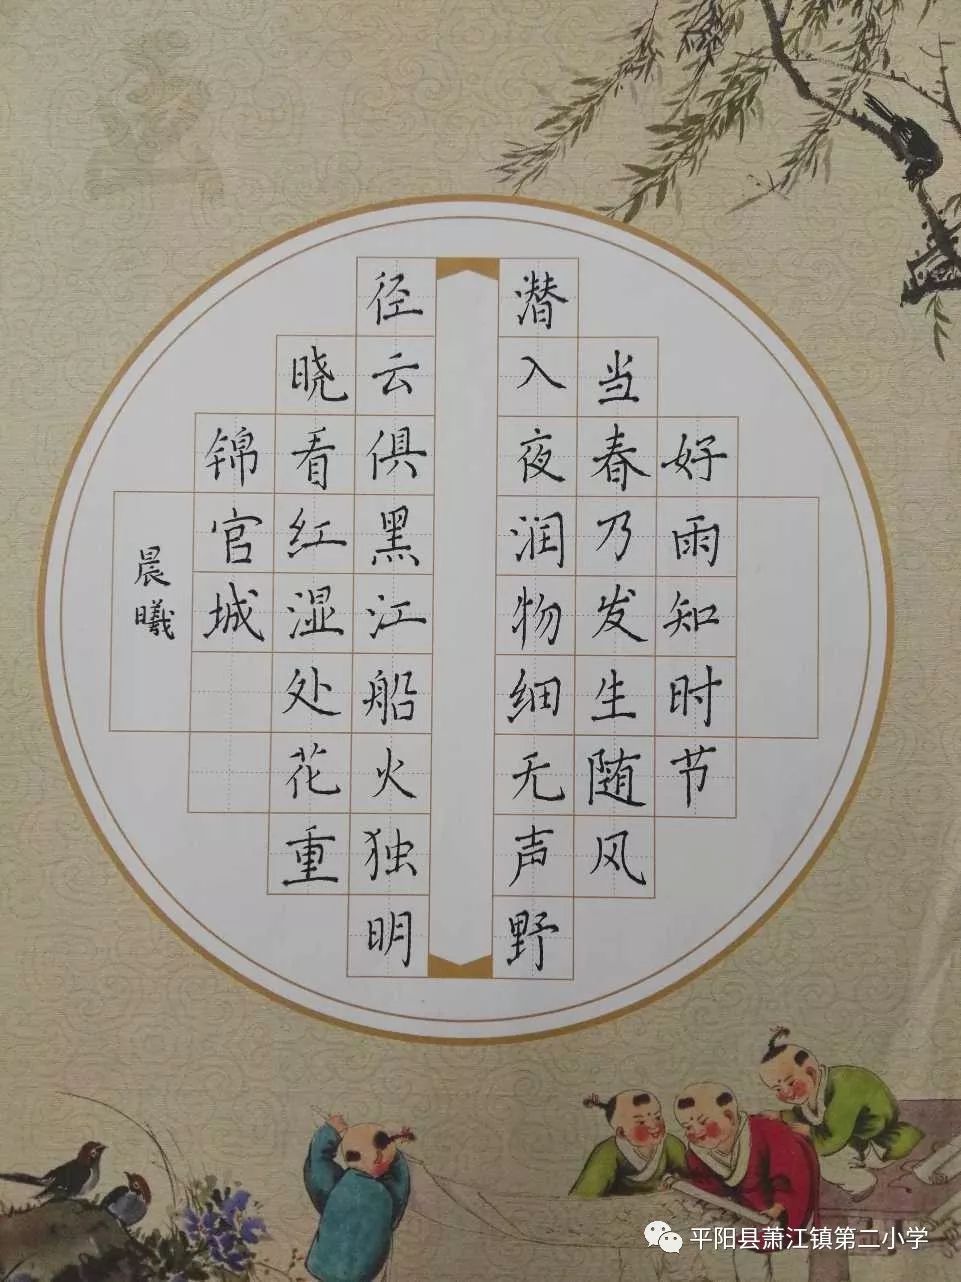 好雨知时节
当春乃发生随风
潜入夜润物细无声野
径云俱黑江船火独明
晓看红湿处花重
锦官城
晨曦
平阳县萧江镇第二小学